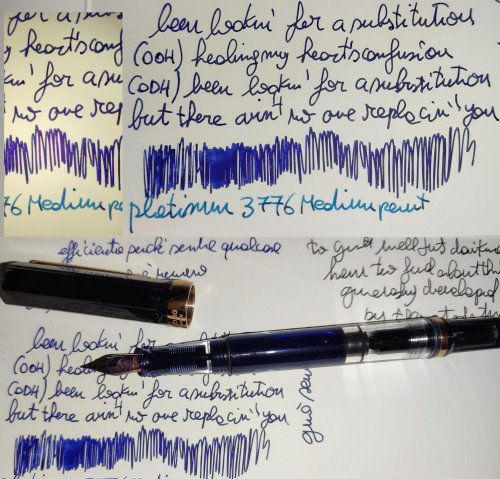 for a su
y heart's conf
kin' for a su
no one rep
76 Medium
been lookin' for a substitution
(OOH) healing my heart's confusion
(OOH) been lookin' for a substitution
but there ain't no one replacin' you
platinum 3776 Medium
efficiente perché sente qualcosa
to
well just
here to find about th
generally developed
been lookin' for a
(OOH) healing
(OOH) been lookin' for a substitution
but there ain't no one replacin' you
3776 Medium